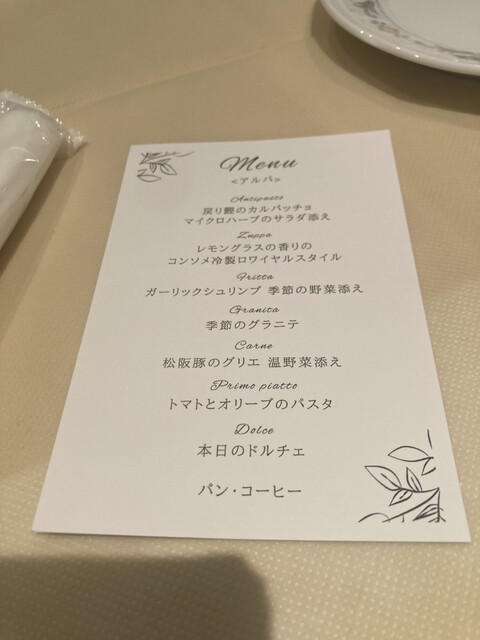 Menu
<アルバ>
Antipasto
戻り鰹のカルパッチョ
マイクロハーブのサラダ添え
Zuppa
レモングラスの香りの
コンソメ冷製ロワイヤルスタイル
Fritta
ガーリックシュリンプ 季節の野菜添え
Granita
季節のグラニテ
Carne
松阪豚のグリエ 温野菜添え
Primo piatto
トマトとオリーブのパスタ
Dolce
本日のドルチェ
パン・コーヒー